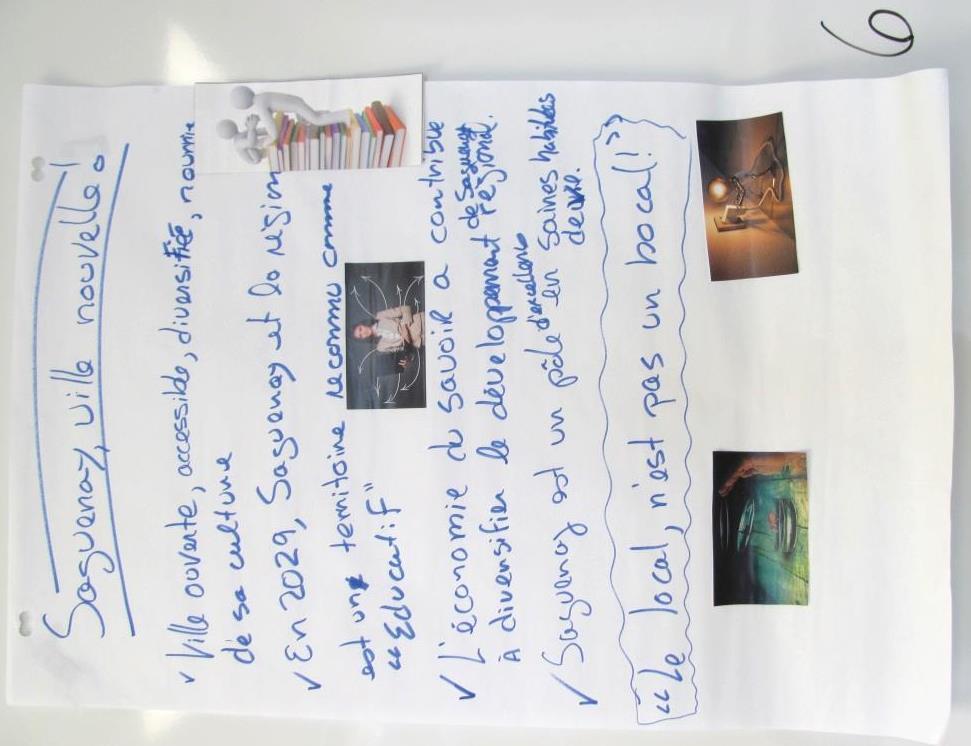 6
Saguenay, ville nouvelle!
✓ Ville ouverte, accessible, diversifiée, nourrie
de sa culture
✓ En 2029, Saguenay et la région
est un territoire reconnu comme
"Éducatif"
✓ L'économie du savoir a contribué
à diversifier le développement régional.
de Saguenay
✓ Saguenay est un pôle d'excellence en saines habitudes
de vie.
"Le local, n'est pas un bocal!"